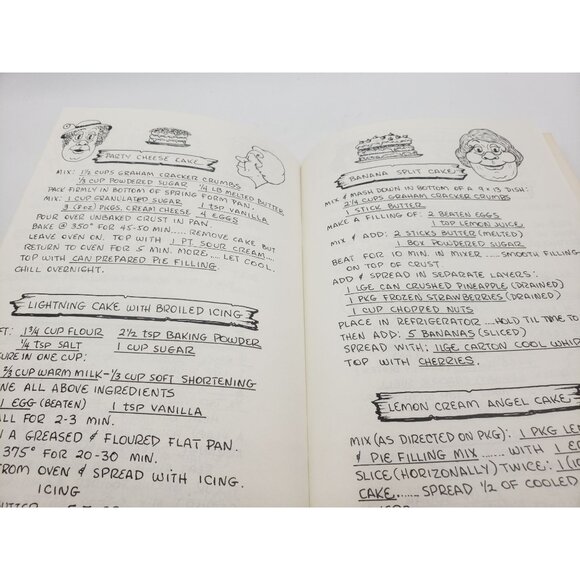 PARTY CHEESE CAKE
MIX: 1½ CUPS GRAHAM CRACKER CRUMBS
⅓ CUP POWDERED SUGAR ¼ LB MELTED BUTTER
PACK FIRMLY IN BOTTOM OF SPRING FORM PAN.
MIX: 1 CUP GRANULATED SUGAR 1 tsp VANILLA
3 (8oz) PKGS. CREAM CHEESE 4 EGGS
POUR OVER UNBAKED CRUST IN PAN.
BAKE @ 350° FOR 45-50 MIN...... REMOVE CAKE BUT
LEAVE OVEN ON. TOP WITH 1 PT. SOUR CREAM....
RETURN TO OVEN FOR 5 MIN. MORE.... LET COOL.
TOP WITH CAN PREPARED PIE FILLING
CHILL OVERNIGHT.
LIGHTNING CAKE WITH BROILED ICING
FT: 1¾ CUP FLOUR 2½ tsp BAKING POWDER
¼ tsp SALT 1 CUP SUGAR
URE IN ONE CUP:
⅔ CUP WARM MILK-⅓ CUP SOFT SHORTENING
NE ALL ABOVE INGREDIENTS
1 EGG (BEATEN) 1 tsp VANILLA
ALL FOR 2-3 MIN.
N A GREASED & FLOURED FLAT PAN.
375° FOR 20-30 MIN.
FROM OVEN & SPREAD WITH ICING.
ICING
BANANA SPLIT CAKE
MIX & MASH DOWN IN BOTTOM OF A 9 x 13 DISH:
2¼ CUPS GRAHAM CRACKER CRUMBS
1 STICK BUTTER
MAKE A FILLING OF: 2 BEATEN EGGS
1 tsp LEMON JUICE
MIX & ADD: 2 STICKS BUTTER (MELTED)
1 BOX POWDERED SUGAR
BEAT FOR 10 MIN. IN MIXER..... SMOOTH FILLING
ON TOP OF CRUST
ADD & SPREAD IN SEPARATE LAYERS:
1 LGE CAN CRUSHED PINEAPPLE (DRAINED)
1 PKG FROZEN STRAWBERRIES (DRAINED)
1 CUP CHOPPED NUTS
PLACE IN REFRIGERATOR....HOLD TIL TIME TO
THEN ADD: 5 BANANAS (SLICED)
SPREAD WITH: 1 LGE CARTON COOL WHIP
TOP WITH CHERRIES.
LEMON CREAM ANGEL CAKE
MIX (AS DIRECTED ON PKG): 1 PKG LE
& PIE FILLING MIX ...... WITH 1 C
SLICE (HORIZONALLY) TWICE: 1 (10
CAKE....... SPREAD ½ OF COOLED